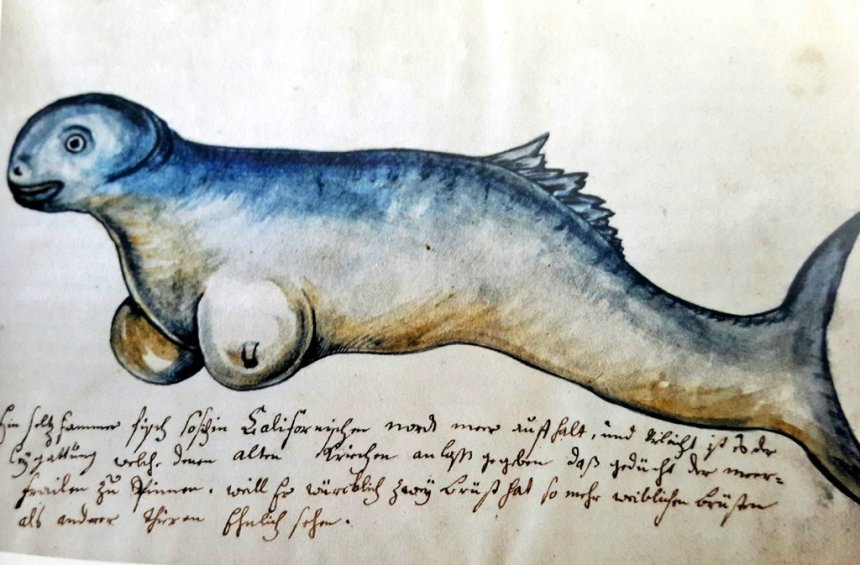 Ein seltzsammer fisch so sich in Californischen nord meer auffhalt, und villeicht ist es der
gattung welche denen alten Griechen anlaß gegeben daß gedicht der meer=
frailen zu spinnen. weill Er würcklich zwey brüst hat so mehr weiblichen brüsten
als anderer thieren Ehnlich sehen.